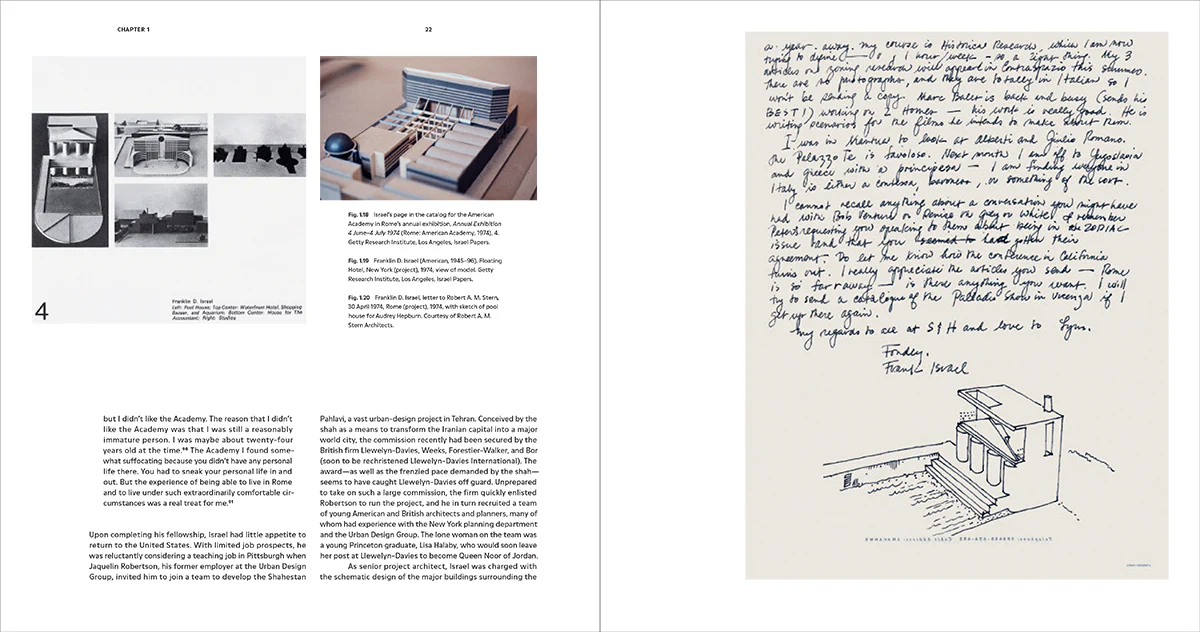 CHAPTER 1
22
4
Franklin D. Israel
Left: Pool House; Top Center: Waterfront Hotel, Shopping
Bazaar, and Aquarium; Bottom Center: House for The
Accountant; Right: Studies
Fig. 1.18 Israel's page in the catalog for the American
Academy in Rome's annual exhibition, Annual Exhibition
4 June–4 July 1974 (Rome: American Academy, 1974), 4.
Getty Research Institute, Los Angeles, Israel Papers.
Fig. 1.19 Franklin D. Israel (American, 1945–96). Floating
Hotel, New York (project), 1974, view of model. Getty
Research Institute, Los Angeles, Israel Papers.
Fig. 1.20 Franklin D. Israel, letter to Robert A. M. Stern,
30 April 1974, Rome (project), 1974, with sketch of pool
house for Audrey Hepburn. Courtesy of Robert A. M.
Stern Architects.
but I didn't like the Academy. The reason that I didn't
like the Academy was that I was still a reasonably
immature person. I was maybe about twenty-four
years old at the time. The Academy I found some-
what suffocating because you didn't have any personal
life there. You had to sneak your personal life in and
out. But the experience of being able to live in Rome
and to live under such extraordinarily comfortable cir-
cumstances was a real treat for me.
Upon completing his fellowship, Israel had little appetite to
return to the United States. With limited job prospects, he
was reluctantly considering a teaching job in Pittsburgh when
Jaquelin Robertson, his former employer at the Urban Design
Group, invited him to join a team to develop the Shahestan
Pahlavi, a vast urban-design project in Tehran. Conceived by the
shah as a means to transform the Iranian capital into a major
world city, the commission recently had been secured by the
British firm Llewelyn-Davies, Weeks, Forestier-Walker, and Bor
(soon to be rechristened Llewelyn-Davies International). The
award—as well as the frenzied pace demanded by the shah—
seems to have caught Llewelyn-Davies off guard. Unprepared
to take on such a large commission, the firm quickly enlisted
Robertson to run the project, and he in turn recruited a team
of young American and British architects and planners, many of
whom had experience with the New York planning department
and the Urban Design Group. The lone woman on the team was
a young Princeton graduate, Lisa Halaby, who would soon leave
her post at Llewelyn-Davies to become Queen Noor of Jordan.
As senior project architect, Israel was charged with
the schematic design of the major buildings surrounding the
a year away. my course is Historical Research, which I am now
trying to define 1 hour/week - so, a light thing. My 3
articles on zoning research will appear in Contraspazio this summer.
There are no photographs, and they are totally in Italian so I
won't be sending a copy. Marc Balet is back and busy (sends his
BEST!) working on 2 Homes — his work is really good. He is
writing scenarios for the films he intends to make about them.
I was in Mantua to look at Alberti and Giulio Romano.
The Palazzo Te is favoloso. Next month I am off to Yugoslavia
and Greece with a principessa — I am finding everyone in
Italy is either a contessa, baroness, or something of the sort.
I cannot recall anything about a conversation you might have
had with Bob Venturi or Denise on Grey or White. I remember
Peter's requesting you speaking to them about being in the ZODIAC
issue and that you seemed to have gotten their
agreement. Do let me know how the conference in California
turns out. I really appreciate the articles you send — Rome
is so far away — is there anything you want. I will
try to send a catalogue of the Palladio show in Vicenza if I
get up there again.
My regards to all at S & H and love to Lynn.
Fondly,
Frank Israel